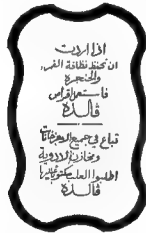 اذا اردت
ان تحفظ نظافة الفم
والحنجرة
فاستعمل اقراص
ڤالدة
تباع في جميع الاجزاخانات
ومخازن الادوية
اطلبوا العلب مكتوب عليها
ڤالدة